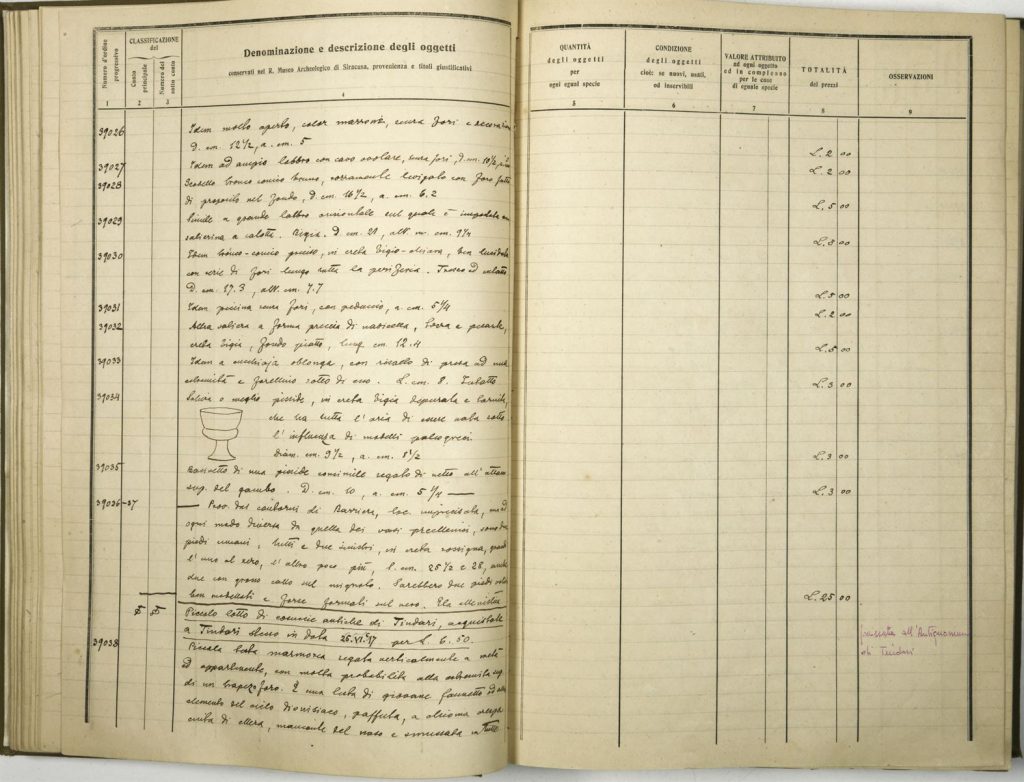 Numero d'ordine progressivo
CLASSIFICAZIONE
del
Conto principale
Numero del sotto conto
Denominazione e descrizione degli oggetti
conservati nel R. Museo Archeologico di Siracusa, provenienza e titoli giustificativi
1 2 3 4
39026 Idem molto aperto, color marrone, senza fori e
D. cm. 12 1/2, a. cm. 5
39027 Idem ad ampio labbro con cavo ovolare, senza fori, D. cm. 10 1/2,
39028 tronco conico bruno, levigato con foro fatto
di proposito nel fondo, D. cm. 16 1/2, a. cm. 6.2
39029 Simile a grande labbro orizzontale sul quale è impostata una
salierina a calotta. Bigia. D. cm. 21, alt. m. cm. 9 1/4
39030 Idem tronco-conico in creta bigio-chiara, ben lucidata
con serie di fori lungo tutta la periferia.
D. cm. 17.3, alt. cm. 7.7
39031 Idem piccina senza fori, con peduccio, a. cm. 5 1/4
39032 Altra saliera a forma precisa di navicella,
creta bigia, fondo piatto, lung. cm. 12.4
39033 Idem a cucchiaja oblonga, con risalto di presa ad una
estremità e forellino sotto di esso. L. cm. 8. Intatto
39034 Saliera o meglio pisside, in creta bigia depurata e
che ha tutta l'aria di essere nata sotto
l'influenza di modelli paleogreci.
diam. cm. 9 1/2, a. cm. 8 1/2
39035 di una pisside consimile segato di netto all'attacco
sup. del gambo. D. cm. 10, a. cm. 5 1/4
39036-37 Prov. dai contorni di Barriera, loc. imprecisata, ma ad
ogni modo diversa da quella dei vasi precedenti, sono due
piedi umani, tutti e due sinistri, in creta rossigna, grandi
l'uno al vero, l'altro poco più, l. cm. 25 1/2 e 28,
due con grosso callo sul mignolo. Sarebbero due piedi
ben modellati e forse formati sul vero.
Piccolo lotto di antiche di Tindari, acquistate
a Tindari stesso in data 25.VI.17 per L. 6.50.
39038 Piccola testa marmorea segata verticalmente a metà
ed appartenente, con molta probabilità alla estremità sup.
di un trapezoforo. È una testa di giovane faunetto od altro
elemento del ciclo dionisiaco, paffuta, a chioma
cinta di ellera, mancante del naso e smussata in
QUANTITÀ
degli oggetti
per
ogni egual specie
5
CONDIZIONE
degli oggetti
cioè: se nuovi, usati,
od inservibili
6
VALORE ATTRIBUITO
ad ogni oggetto
ed in complesso
per le cose
di eguale specie
7
TOTALITÀ
dei prezzi
8
OSSERVAZIONI
9
L. 2 00
L. 2 00
L. 5 00
L. 3 00
L. 5 00
L. 2 00
L. 5 00
L. 3 00
L. 3 00
L. 3 00
L. 25 00
passata all'Antiquarium
di Tindari